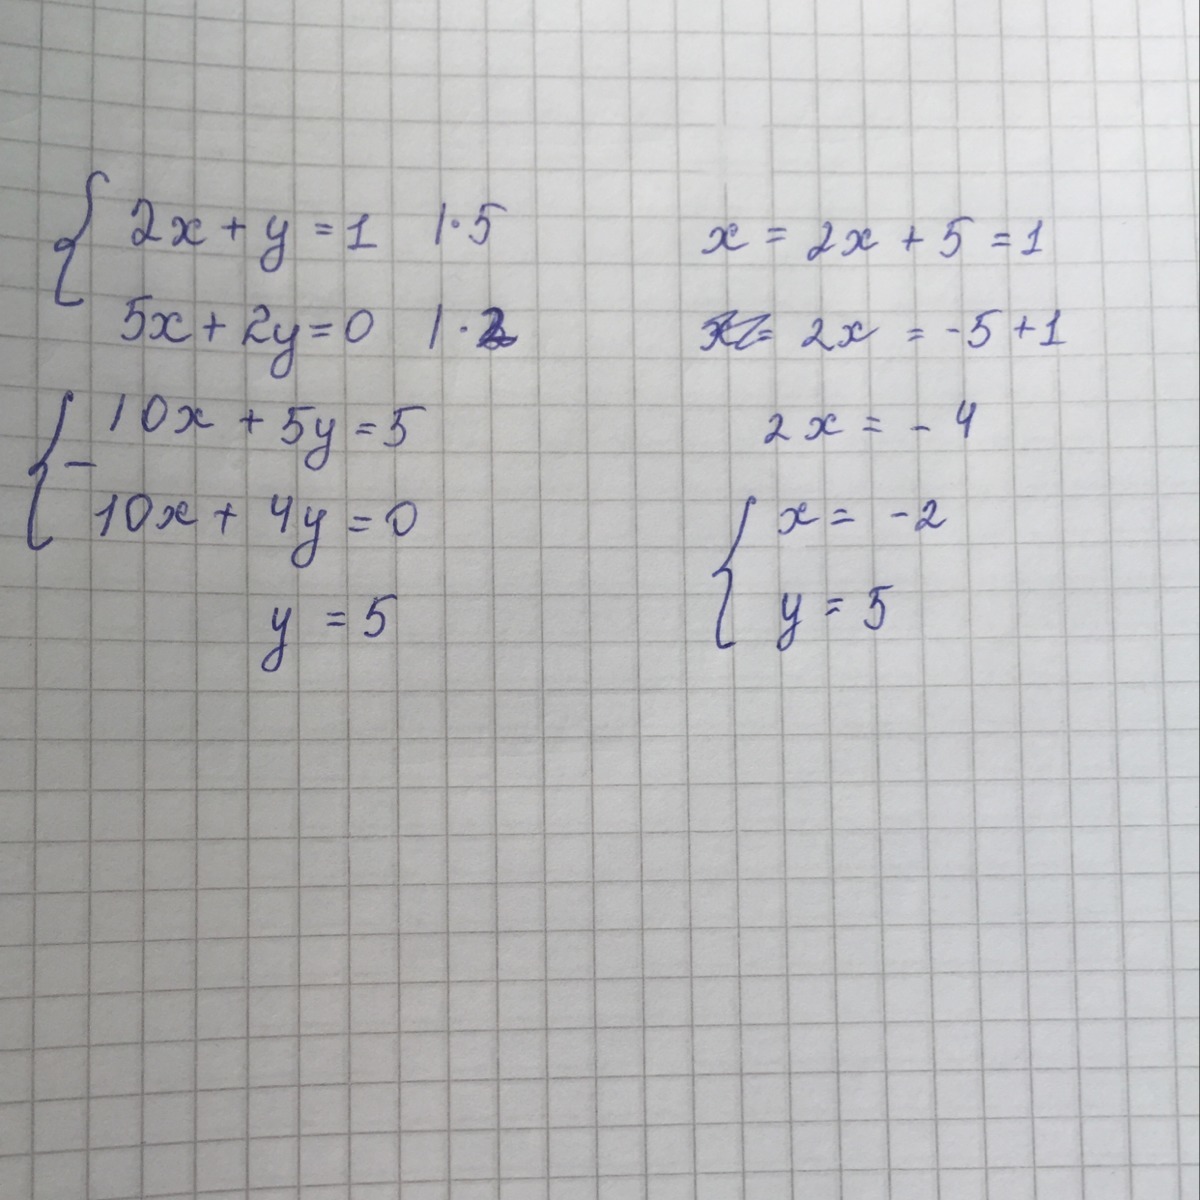 2x + y = 1 | · 5
5x + 2y = 0 | · 2
10x + 5y = 5
−
10x + 4y = 0
y = 5
x = 2x + 5 = 1
2x = -5 + 1
2x = - 4
x = -2
y = 5